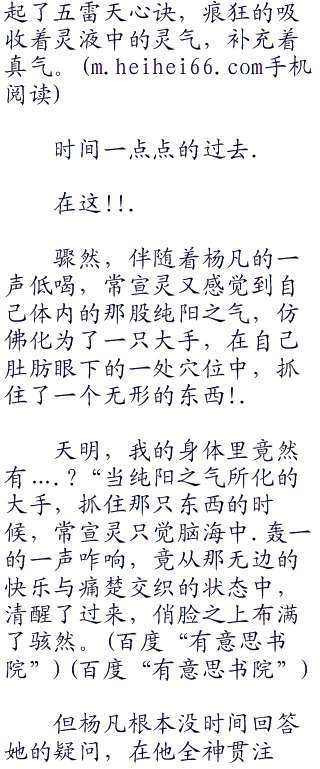 起了五雷天心诀，疯狂的吸
收着灵液中的灵气，补充着
真气。(m.heihei66.com手机
阅读)
时间一点点的过去.
在这!!.
骤然，伴随着杨凡的一
声低喝，常宣灵又感觉到自
己体内的那股纯阳之气，仿
佛化为了一只大手，在自己
肚肪眼下的一处穴位中，抓
住了一个无形的东西!.
天明，我的身体里竟然
有….？“当纯阳之气所化的
大手，抓住那只东西的时
候，常宣灵只觉脑海中.轰一
的一声咋响，竟从那无边的
快乐与痛楚交织的状态中，
清醒了过来，俏脸之上布满
了骇然。(百度“有意思书
院”)(百度“有意思书院”)
但杨凡根本没时间回答
她的疑问，在他全神贯注